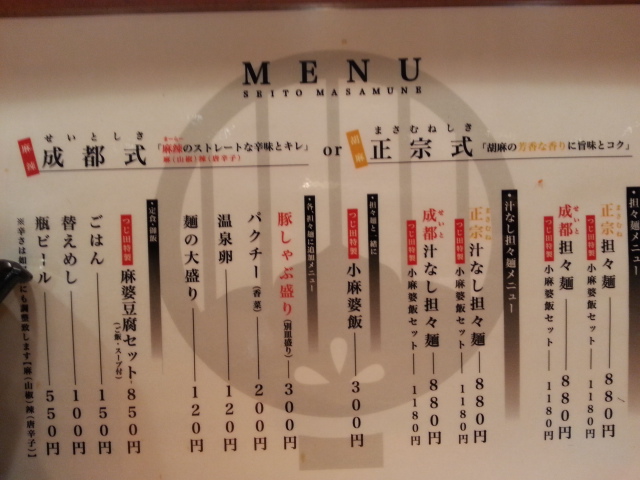 MENU
SEITO MASAMUNE
麻辣
せいとしき
成都式
「麻辣のストレートな辛味とキレ」
麻(山椒)辣(唐辛子)
or
胡麻
まさむねしき
正宗式
「胡麻の芳香な香りに旨味とコク」
正宗担々麺 880円
つじ田特製 小麻婆飯セット 1180円
せいと
成都担々麺 880円
つじ田特製 小麻婆飯セット 1180円
汁なし担々麺メニュー
正宗汁なし担々麺 880円
つじ田特製 小麻婆飯セット 1180円
せいと
成都汁なし担々麺 880円
つじ田特製 小麻婆飯セット 1180円
担々麺と一緒に
つじ田特製 小麻婆飯 300円
各、担々麺に追加メニュー
豚しゃぶ盛り(別皿盛り) 300円
パクチー(香菜) 200円
温泉卵 120円
麺の大盛り 120円
定食・御飯
つじ田特製 麻婆豆腐セット 850円
(ご飯・スープ付)
ごはん 150円
替えめし 100円
瓶ビール 550円
※辛さは如 にも調整致します【麻(山椒)辣(唐辛子)】